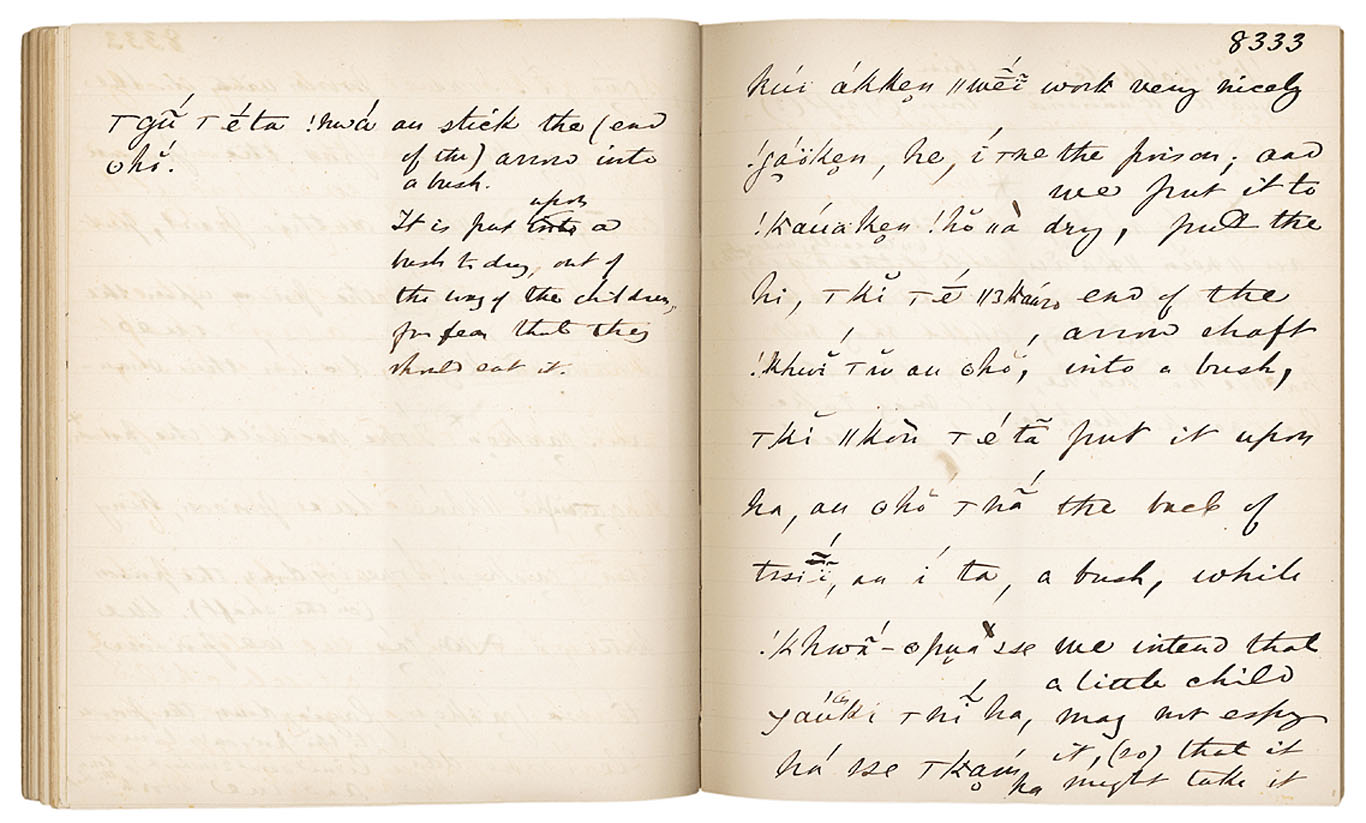 Tgū́ Té̄ta !nwá au stick the (end
ʘhŏ́. of the) arrow into
a bush.
upon
It is put into a
bush to dry, out of
the way of the children,
for fear that they
should eat it.
8333
kúï ákkẹn work very nicely
he, í Tne the poison; and
we put it to
!kaúaken !hŏ ǁà dry, pull the
hi, Tkĭ Té̄ end of the
arrow shaft
au ʘhŏ́, into a bush,
Tkĭ ǁkōṅ Té tā put it upon
ha, au ʘhŏ Tnā́ the back of
au í ta, a bush, while
!khwā́-ʘpụa sse we intend that
a little child
Tnĭ́ ha, may not espy
há sse it, (so) that it
ha might take it